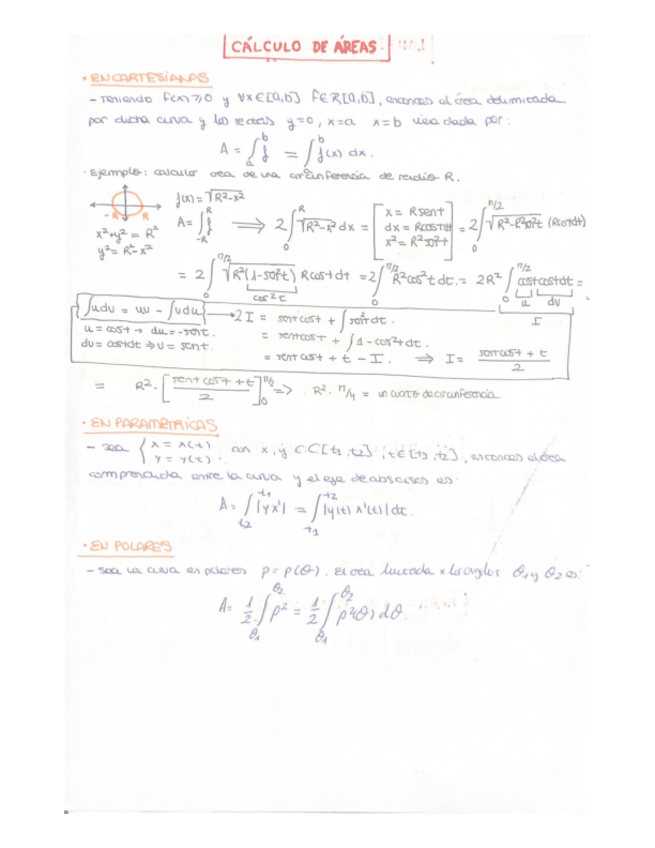 CÁLCULO DE ÁREAS
· EN CARTESIANAS
- Teniendo f(x) ≥ 0 y ∀x∈[a,b] f∈R[a,b], entonces el área delimitada
por dicha curva y las rectas y=0, x=a x=b viene dada por:
A = ∫_a^b f = ∫^b f(x) dx.
· Ejemplo: calcular area de una circunferencia de radio R.
f(x) = √R²-x²
-R R
x²+y² = R²
y² = R²-x²
A = ∫_{-R}^R f ⟹ 2∫_0^R √R²-x² dx = [x = R sent
dx = R cost dt
x² = R² sen²t] = 2∫_0^{π/2} √R²-R²sen²t (Rcostdt)
= 2∫_0^{π/2} √R²(1-sen²t) Rcostdt = 2∫_0^{π/2} R²cos²t dt. = 2R² ∫_0^{π/2} cost costdt =
cos²t u dv
I
∫udv = uv - ∫vdu → 2I = sent cost + ∫sen²t dt.
u = cost → du = -sent.
dv = costdt ⇒ v = sent.
= sent cost + ∫1-cos²t dt.
= sent cost + t - I. ⟹ I = sent cost + t / 2
= R². [sent cost + t / 2]_0^{π/2} => R². π/4 = un cuarto de circunferencia.
· EN PARAMÉTRICAS
- Sea { x = x(t)
y = y(t) . con x, y ∈ C[t1, t2] , t∈[t1, t2], entonces el área
comprendida entre la curva y el eje de abscisas es:
A = ∫_{t2}^{t1} |yx'| = ∫_{t1}^{t2} |y(t) x'(t)| dt.
· EN POLARES
- Sea la curva en polares ρ = ρ(θ). El area limitada x los ángulos θ1 y θ2 es:
A = 1/2 ∫_{θ1}^{θ2} ρ² = 1/2 ∫_{θ1}^{θ2} ρ²(θ) dθ.